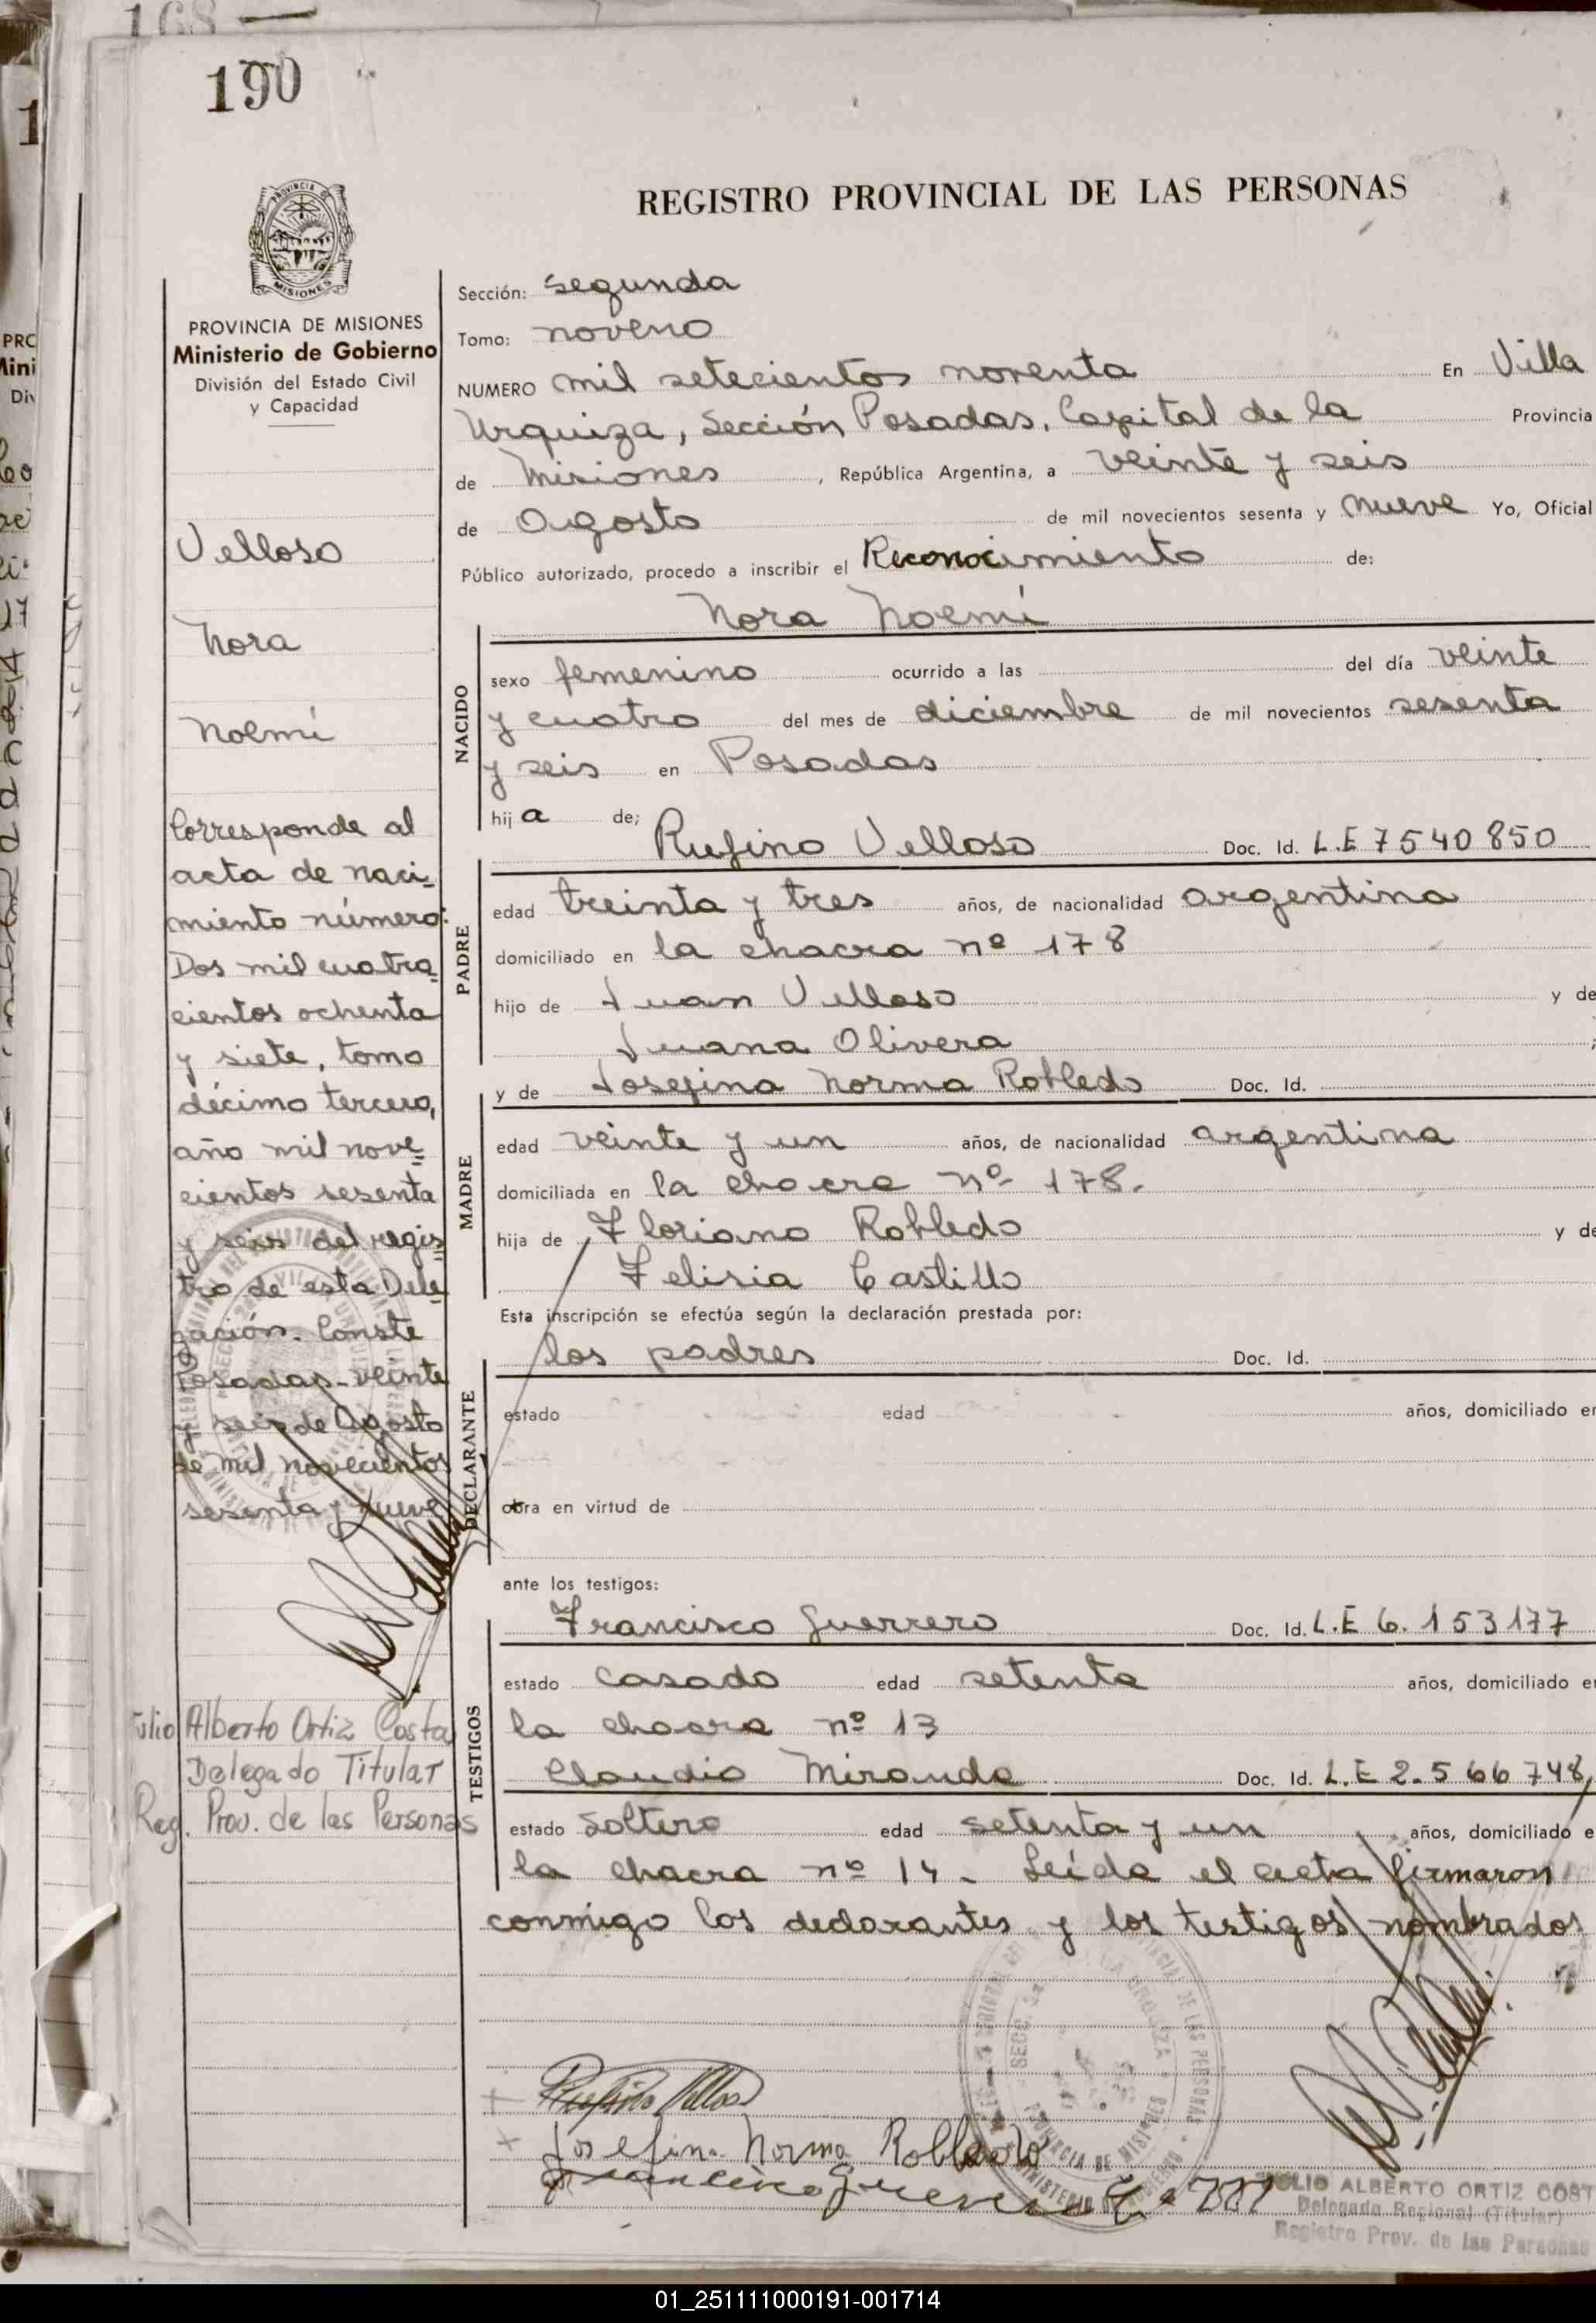 168
190
REGISTRO PROVINCIAL DE LAS PERSONAS
PROVINCIA DE MISIONES
Ministerio de Gobierno
División del Estado Civil
y Capacidad
Velloso
Nora
Noemí
Corresponde al
acta de naci-
miento número:
Dos mil cuatro
cientos ochenta
y siete, tomo
décimo tercero,
año mil nove
cientos sesenta
y seis del regis
tro de esta Dele
gación. Conste
Posadas - veinte
y seis de Agosto
de mil novecientos
sesenta y nueve
Julio Alberto Ortiz Costa
Delegado Titular
Reg. Prov. de las Personas
Sección: segunda
Tomo: noveno
NUMERO mil setecientos noventa En Villa
Urquiza, Sección Posadas, Capital de la Provincia
de Misiones , República Argentina, a veinte y seis
de Agosto de mil novecientos sesenta y nueve Yo, Oficial
Público autorizado, procedo a inscribir el Reconocimiento de:
Nora Noemí
NACIDO
sexo femenino ocurrido a las del día veinte
y cuatro del mes de diciembre de mil novecientos sesenta
y seis en Posadas
hija de;
Rufino Velloso Doc. Id. L.E 7540850
PADRE
edad treinta y tres años, de nacionalidad argentina
domiciliado en la chacra nº 178
hijo de Juan Velloso y de
Juana Olivera
y de Josefina Norma Robledo Doc. Id.
MADRE
edad veinte y un años, de nacionalidad argentina
domiciliada en la chacra nº 178.
hija de Floriano Robledo y de
Felisia Castillo
Esta inscripción se efectúa según la declaración prestada por:
los padres Doc. Id.
DECLARANTE
estado edad años, domiciliado en
obra en virtud de
ante los testigos:
Francisco Guerrero Doc. Id. L.E 6.153177
TESTIGOS
estado casado edad setenta años, domiciliado en
la chacra nº 13
Claudio Miranda Doc. Id. L.E 2.566748
estado soltero edad setenta y un años, domiciliado e
la chacra nº 14 - Leída el acta firmaron
conmigo los declarantes y los testigos nombrados
Rufino Velloso
Josefina Norma Robledo
Francisco Guerrero
JULIO ALBERTO ORTIZ COST
Delegado Regional (Titular)
Registro Prov. de las Personas
01_251111000191-001714